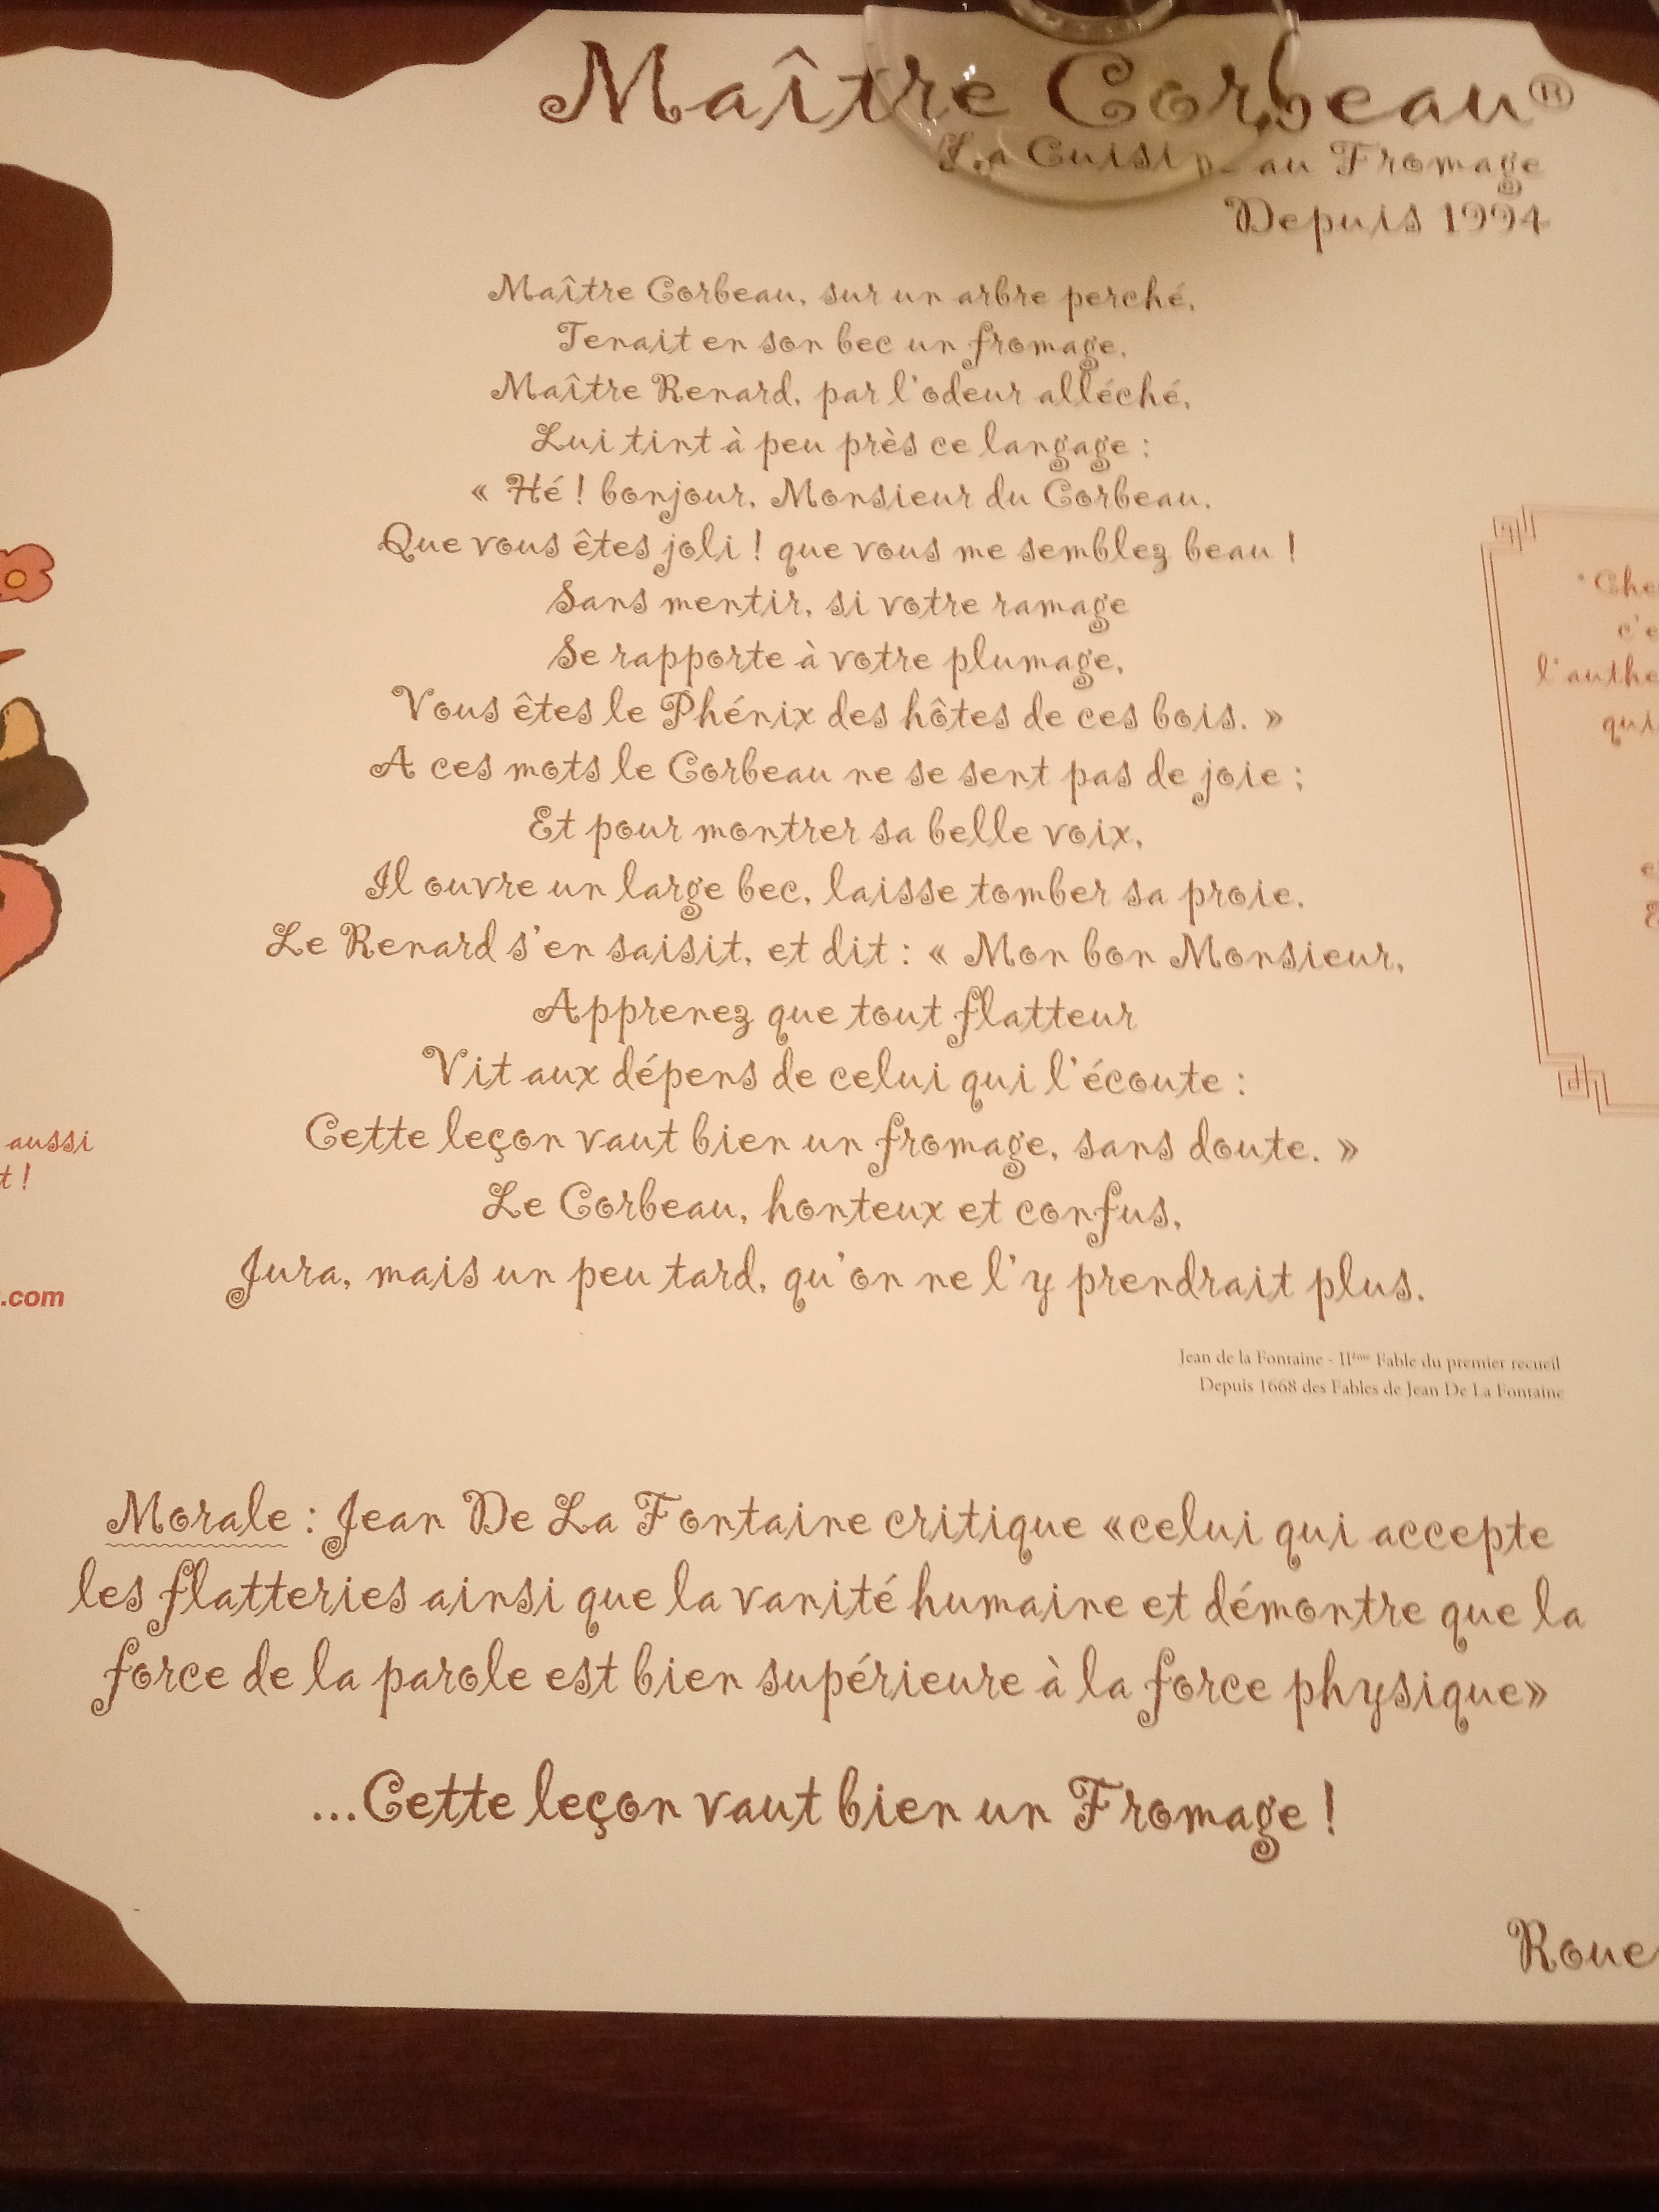 Maître Corbeau®
La Cuisine au Fromage
Depuis 1994
Maître Corbeau, sur un arbre perché,
Tenait en son bec un fromage.
Maître Renard, par l'odeur alléché,
Lui tint à peu près ce langage :
« Hé ! bonjour, Monsieur du Corbeau.
Que vous êtes joli ! que vous me semblez beau !
Sans mentir, si votre ramage
Se rapporte à votre plumage,
Vous êtes le Phénix des hôtes de ces bois. »
A ces mots le Corbeau ne se sent pas de joie ;
Et pour montrer sa belle voix,
Il ouvre un large bec, laisse tomber sa proie.
Le Renard s'en saisit, et dit : « Mon bon Monsieur,
Apprenez que tout flatteur
Vit aux dépens de celui qui l'écoute :
Cette leçon vaut bien un fromage, sans doute. »
Le Corbeau, honteux et confus,
Jura, mais un peu tard, qu'on ne l'y prendrait plus.
Jean de la Fontaine - IIème Fable du premier recueil
Depuis 1668 des Fables de Jean De La Fontaine
Morale : Jean De La Fontaine critique «celui qui accepte
les flatteries ainsi que la vanité humaine et démontre que la
force de la parole est bien supérieure à la force physique»
...Cette leçon vaut bien un Fromage !
aussi
t !
.com
c'e
l'authe
qui